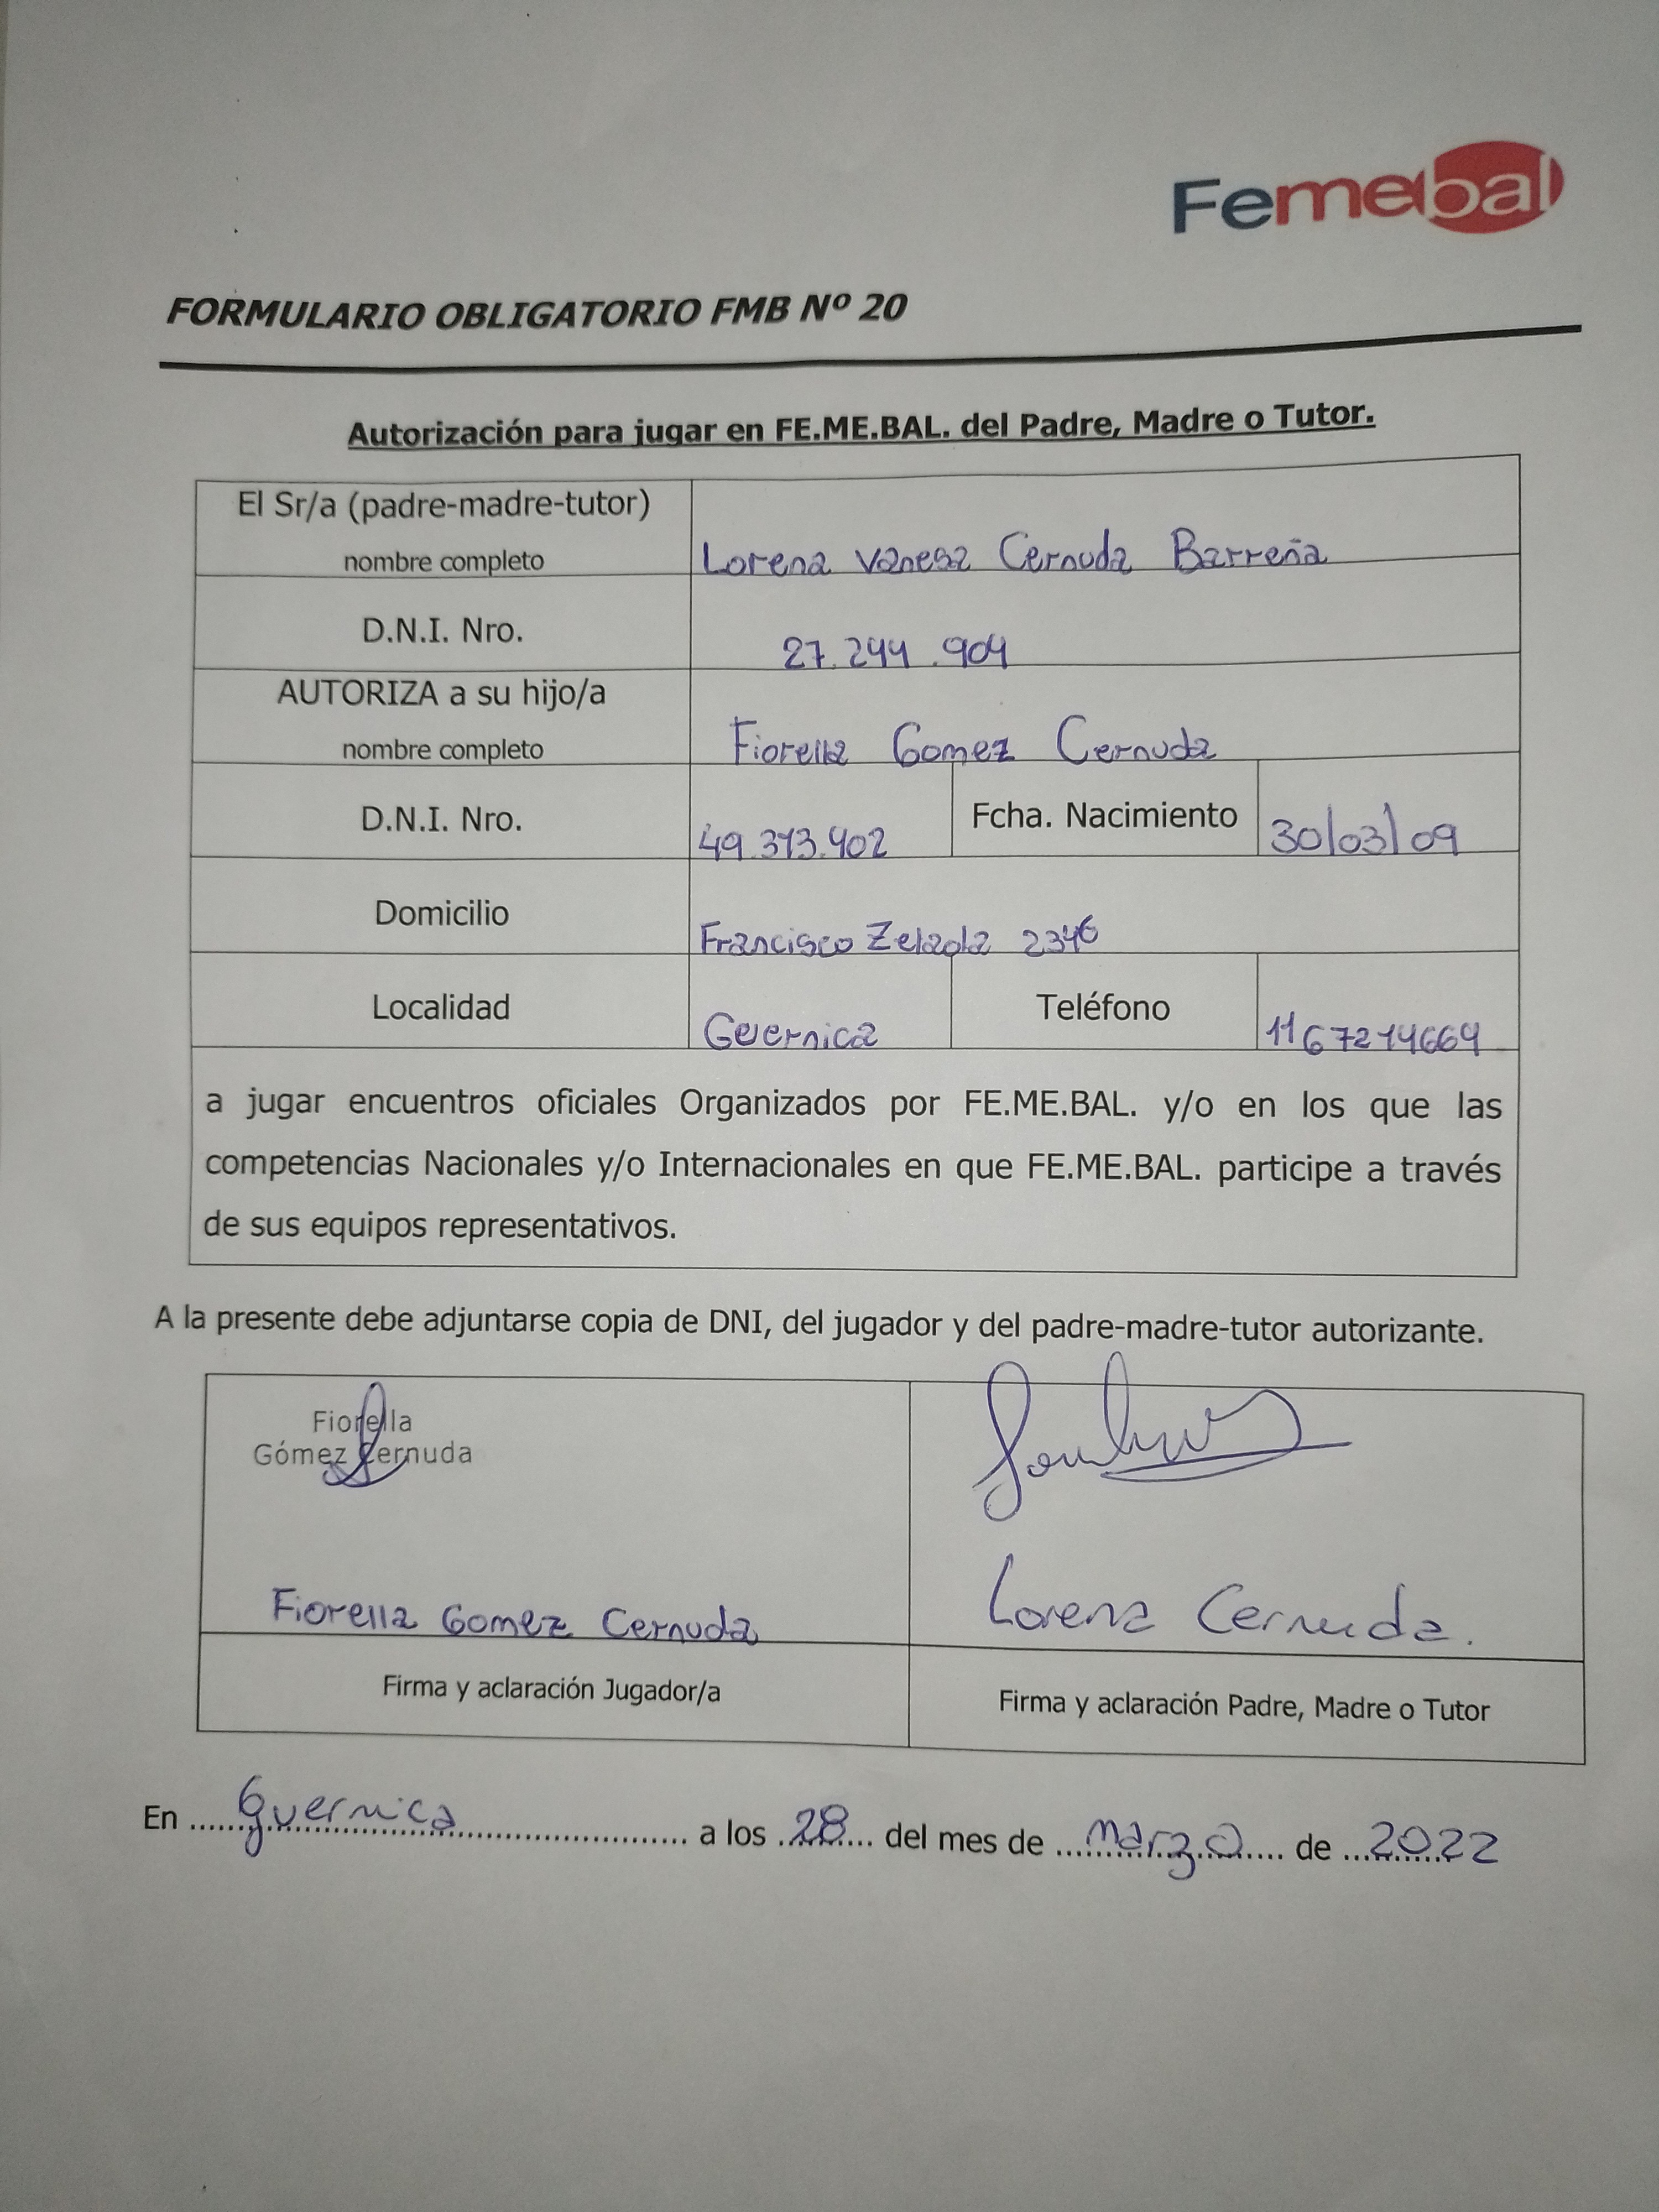 Femebal
FORMULARIO OBLIGATORIO FMB Nº 20
Autorización para jugar en FE.ME.BAL. del Padre, Madre o Tutor.
El Sr/a (padre-madre-tutor)
nombre completo
Lorena Vanesa Cernuda Barreña
D.N.I. Nro.
27.244.904
AUTORIZA a su hijo/a
nombre completo
Fiorella Gomez Cernuda
D.N.I. Nro.
49.373.902
Fcha. Nacimiento
30/03/09
Domicilio
Francisco Zelada 2346
Localidad
Guernica
Teléfono
1167214664
a jugar encuentros oficiales Organizados por FE.ME.BAL. y/o en los que las
competencias Nacionales y/o Internacionales en que FE.ME.BAL. participe a través
de sus equipos representativos.
A la presente debe adjuntarse copia de DNI, del jugador y del padre-madre-tutor autorizante.
Fiorella
Gómez Cernuda
Fiorella Gomez Cernuda
Lorena Cernuda.
Firma y aclaración Jugador/a
Firma y aclaración Padre, Madre o Tutor
En ..... Guernica ..... a los 28 del mes de marzo de 2022